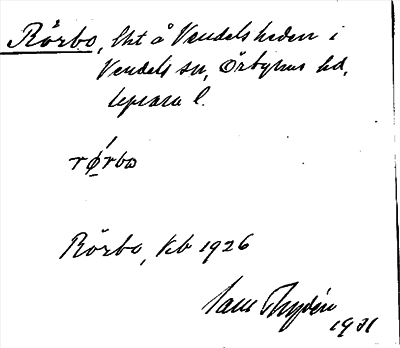 Rörbo, lht å Vendelsheden i
Vendels sn, Örbyhus hd,
Uppsala l.
rørbo
Rörbo, kb 1926
Sam Thydén
1931